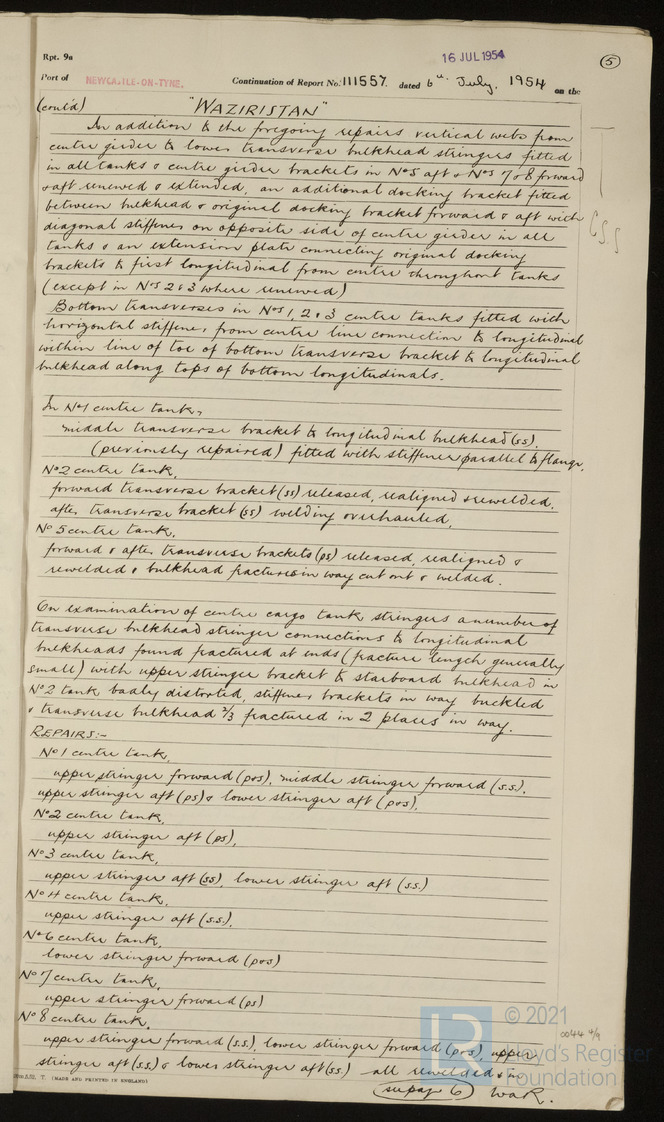 Rpt. 9a
16 JUL 1954
5
Port of NEWCASTLE-ON-TYNE. Continuation of Report No. 111557. dated 6th July, 1954 on the
(cont'd) "WAZIRISTAN"
In addition to the foregoing repairs vertical webs from
centre girder to lower transverse bulkhead stringers fitted
in all tanks & centre girder brackets in No 5 aft & Nos 7 & 8 forward
& aft renewed & extended, an additional docking bracket fitted
between bulkhead & original docking bracket forward & aft with
diagonal stiffener on opposite side of centre girder in all
tanks & an extension plate connecting original docking
brackets to first longitudinal from centre throughout tanks
(except in Nos 2 & 3 where renewed)
Bottom transverses in Nos 1, 2 & 3 centre tanks fitted with
horizontal stiffener, from centre line connection to longitudinal
within line of toe of bottom transverse bracket to longitudinal
bulkhead along tops of bottom longitudinals.
In No 1 centre tank,
middle transverse bracket to longitudinal bulkhead (ss).
(previously repaired) fitted with stiffener parallel to flange,
No 2 centre tank,
forward transverse bracket (ss) released, realigned & rewelded.
after transverse bracket (ss) welding overhauled,
No 5 centre tank.
forward & after transverse brackets (ps) released, realigned &
rewelded & bulkhead fractures in way cut out & welded.
On examination of centre cargo tank stringers a number of
transverse bulkhead stringer connections to longitudinal
bulkheads found fractured at ends (fracture length generally
small) with upper stringer bracket to starboard bulkhead in
No 2 tank badly distorted, stiffener brackets in way buckled
& transverse bulkhead 2/3 fractured in 2 places in way.
REPAIRS:-
No 1 centre tank,
upper stringer forward (pos), middle stringer forward (s.s.),
upper stringer aft (ps) & lower stringer aft (pos),
No 2 centre tank,
upper stringer aft (ps),
No 3 centre tank,
upper stringer aft (ss), lower stringer aft (s.s.)
No 4 centre tank,
upper stringer aft (s.s.),
No 6 centre tank,
lower stringer forward (pos)
No 7 centre tank,
upper stringer forward (ps)
No 8 centre tank,
upper stringer forward (s.s.) lower stringer forward (pos), upper
stringer aft (s.s.) & lower stringer aft (ss.) all rewelded & in
(see page 6) WaR.
T. (MADE AND PRINTED IN ENGLAND)
© 2021
Lloyd's Register
Foundation
0044 4/9